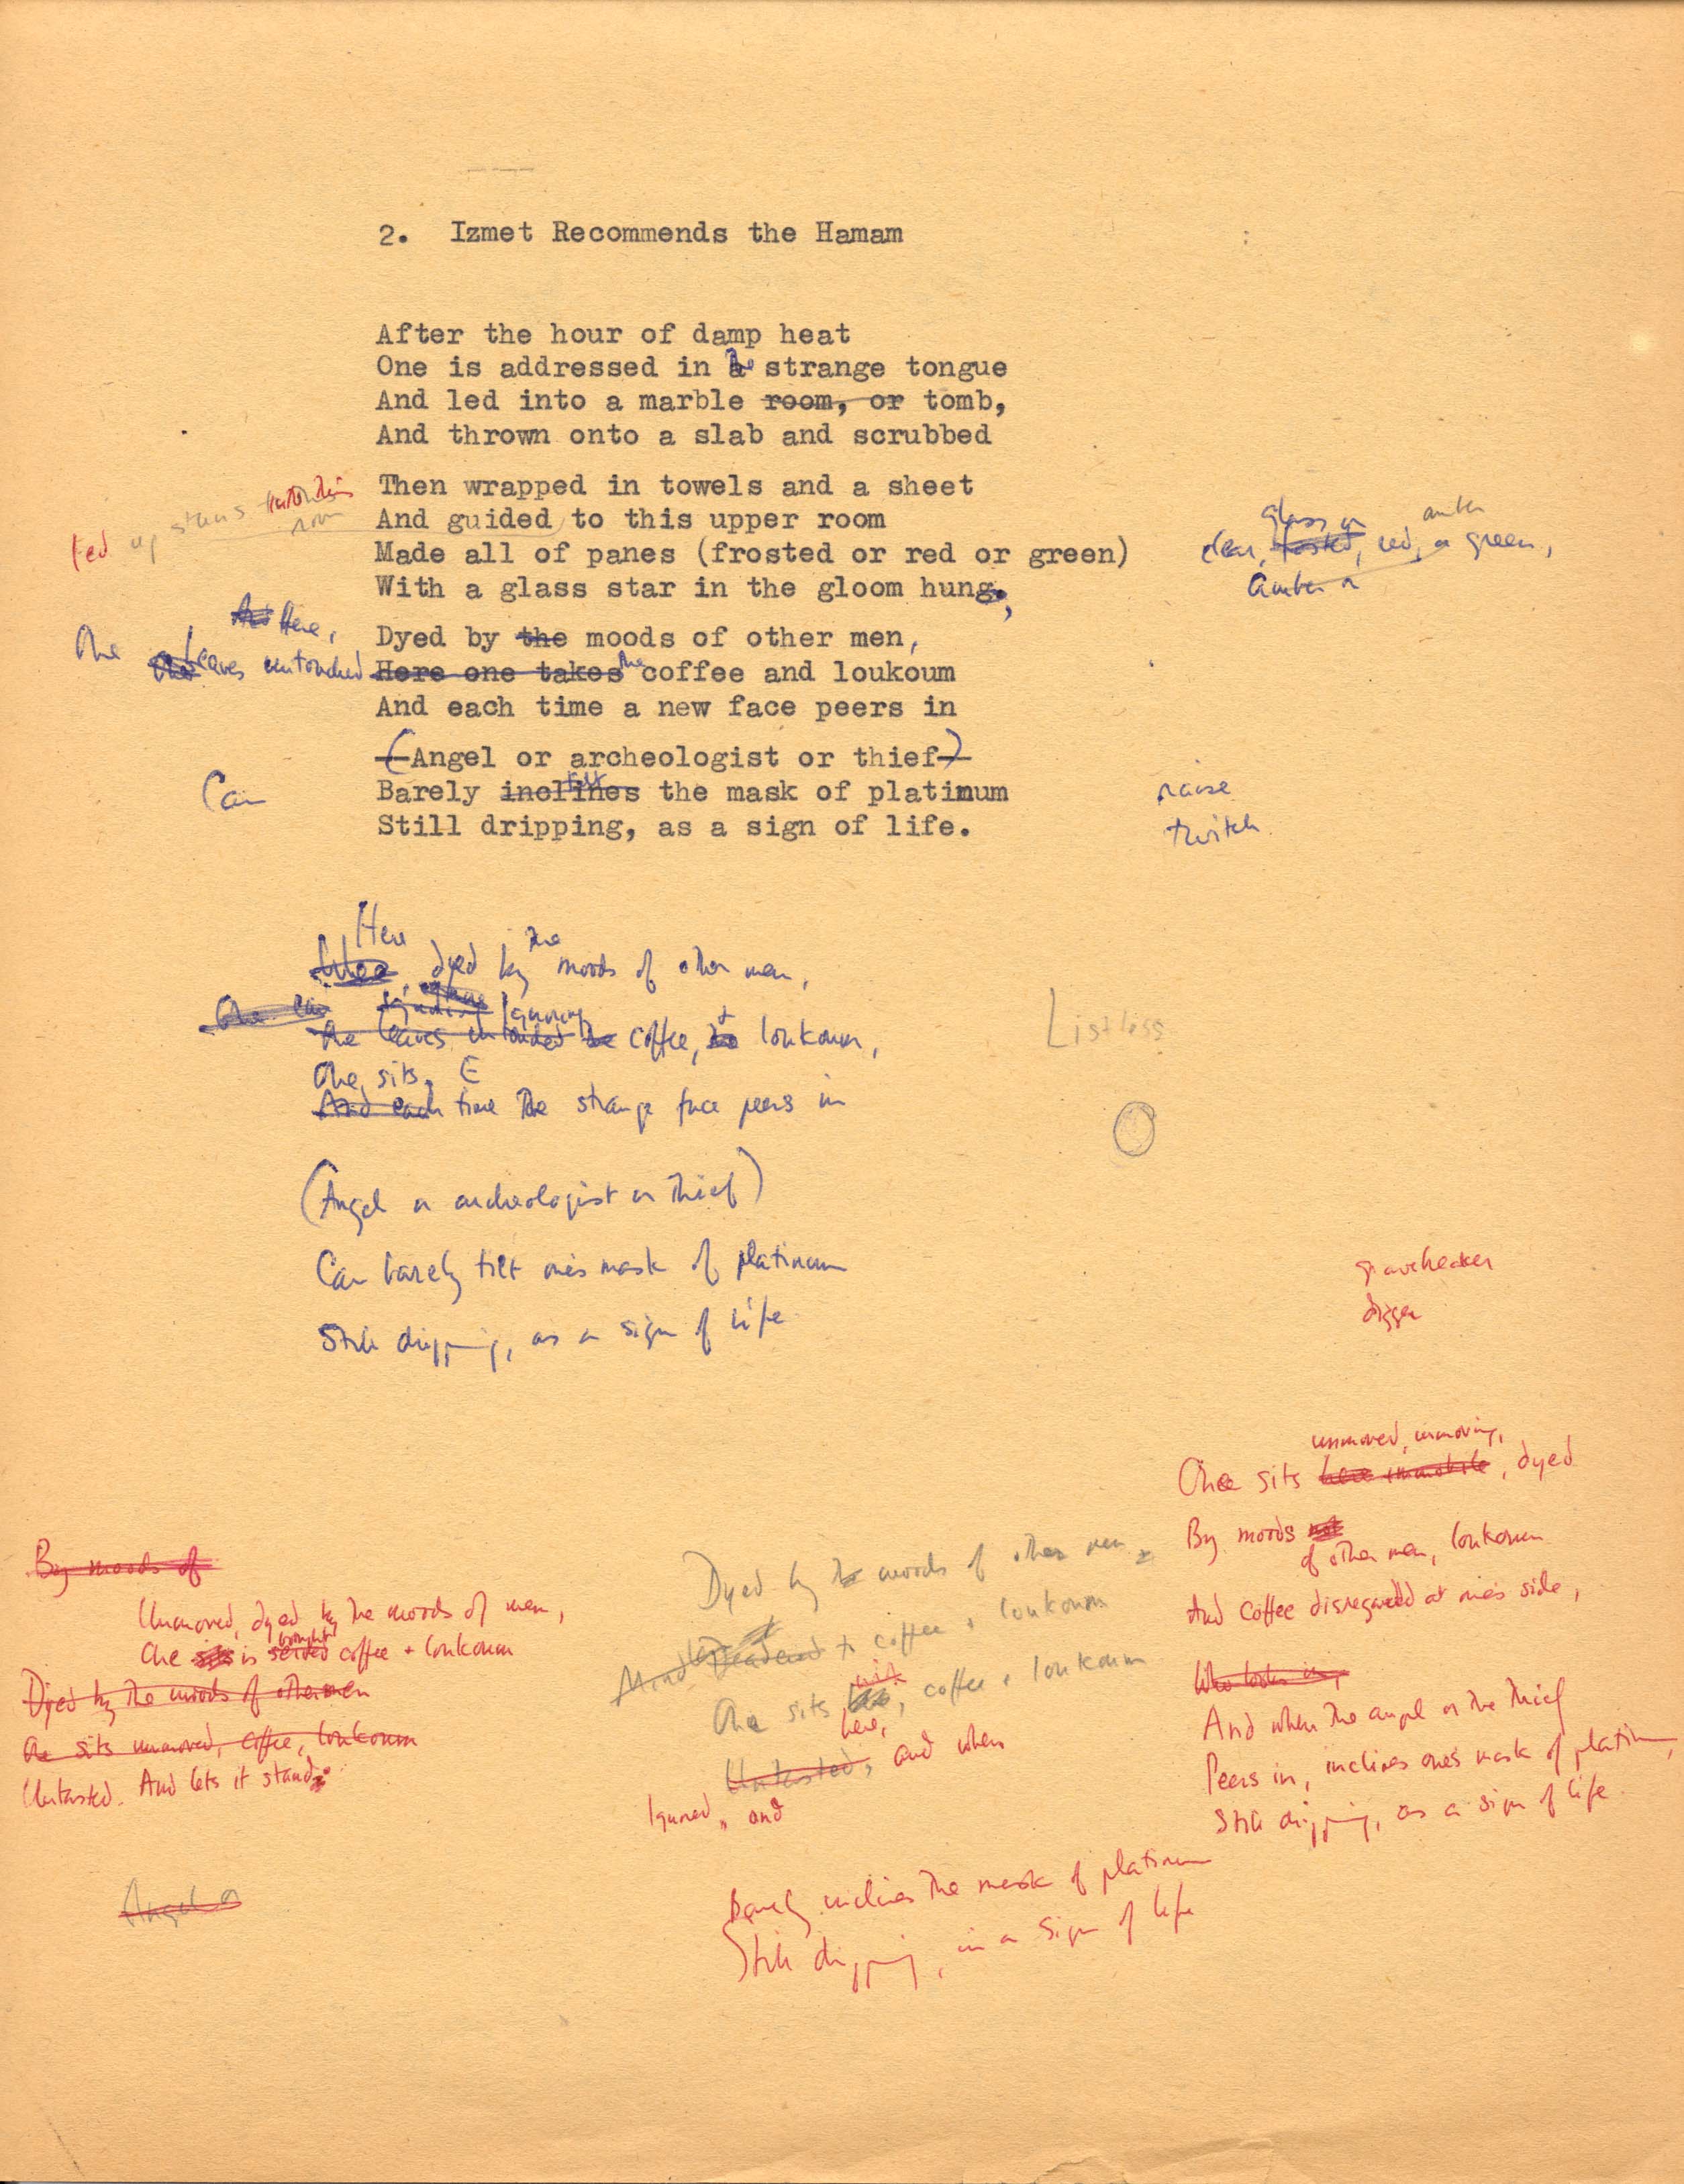 2. Izmet Recommends the Hamam
After the hour of damp heat
One is addressed in the strange tongue
And led into a marble room, or tomb,
And thrown onto a slab and scrubbed
Then wrapped in towels and a sheet
And guided to this upper room
Made all of panes (frosted or red or green)
With a glass star in the gloom hung,
Led upstairs into this
room
glass or
amber
clear, frosted, red, or green,
amber or
Here,
Dyed by the moods of other men,
One leaves untouched
Here one takes the coffee and loukoum
And each time a new face peers in
(Angel or archeologist or thief)
Can
Barely inclines tilt the mask of platinum
Still dripping, as a sign of life.
raise
twitch
Here
dyed by the moods of other men,
One can
Ignoring
One leaves untouched the coffee, & loukoum,
One sits. E
And each time the strange face peers in
Listless
(Angel or archeologist or thief)
Can barely tilt one's mask of platinum
Still dripping, as a sign of life
gravebreaker
digger
unmoved, unmoving,
One sits here immobile, dyed
By moods
of other men, loukoum
And coffee disregarded at one's side,
Who looks in,
And when the angel or the thief
Peers in, inclines one's mask of platinum,
Still dripping, as a sign of life
By moods of
Unmoved, dyed by the moods of men,
brought
One sits is served coffee + loukoum
Dyed by the moods of other men
One sits unmoved, coffee, loukoum
Untasted. And lets it stand
Angel or
Dyed by the moods of other men
Deadened to coffee + loukoum
One sits, coffee + loukoum
here,
Untasted, and when
Ignored, and
Barely inclines the mask of platinum
Still dripping, in a sign of life